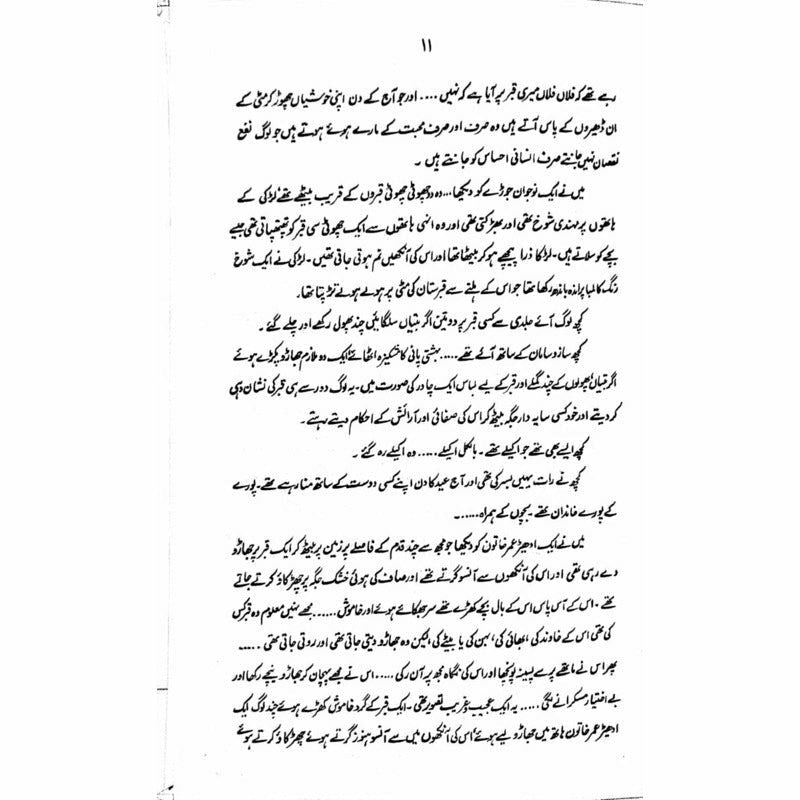 ۱۱
رہے تھے کہ فلاں فلاں میری قبر پر آیا ہے کہ نہیں .... اور جو آج کے دن اپنی خوشیاں چھوڑ کر مٹی کے
ان ڈھیروں کے پاس آتے ہیں وہ صرف اور صرف محبت کے مارے ہوئے ہوتے ہیں جو لوگ نفع
نقصان نہیں جانتے صرف انسانی احساس کو جانتے ہیں ۔
میں نے ایک نوجوان جوڑے کو دیکھا... وہ دو چھوٹی چھوٹی قبروں کے قریب بیٹھے تھے لڑکی کے
ہاتھوں پر مہندی شوخ تھی اور بھڑکتی تھی اور وہ انہی ہاتھوں سے ایک چھوٹی سی قبر کو تھپتھپاتی تھی جیسے
بچے کو سلاتے ہیں۔ لڑکا ذرا پیچھے ہو کر بیٹھا تھا اور اس کی آنکھیں نم ہوتی جاتی تھیں۔ لڑکی نے ایک شوخ
رنگ کا لمبا پراندہ باندھ رکھا تھا جو اس کے ہلنے سے قبرستان کی مٹی پر ہولے ہولے تڑپتا تھا۔
کچھ لوگ آئے جلدی سے کسی قبر پر دو تین اگر بتیاں سلگائیں چند پھول رکھے اور چلے گئے ۔
کچھ ساز و سامان کے ساتھ آئے تھے ..... بہشتی پانی کا مشکیزہ اٹھائے' ایک دو ملازم جھاڑو پکڑے ہوئے
اگر بتیاں' پھولوں کے چند گملے اور قبر کے لیے لباس ایک چادر کی صورت میں۔ یہ لوگ دور سے ہی قبر کی نشان دہی
کر دیتے اور خود کسی سایہ دار جگہ بیٹھ کر اس کی صفائی اور آرائش کے احکام دیتے رہتے۔
کچھ ایسے بھی تھے جو اکیلے تھے ۔ بالکل اکیلے ..... وہ اکیلے رہ گئے ۔
کچھ نے رات یہیں بسر کی تھی اور آج عید کا دن اپنے کسی دوست کے ساتھ منا رہے تھے۔ پورے
کے پورے خاندان تھے۔ بچوں کے ہمراہ .....۔
میں نے ایک ادھیڑ عمر خاتون کو دیکھا جو مجھ سے چند قدم کے فاصلے پر زمین پر بیٹھ کر ایک قبر پر جھاڑو
دے رہی تھی اور اس کی آنکھوں سے آنسو گرتے تھے اور صاف کی ہوئی خشک جگہ پر چھڑکاؤ کرتے جاتے
تھے ۔ اس کے آس پاس اس کے بال بچے کھڑے تھے سر جھکائے ہوئے اور خاموش ...... مجھے نہیں معلوم وہ قبر کس
کی تھی اس کے خاوند کی ، بھائی کی ، بہن کی یا بیٹے کی لیکن وہ جھاڑو دیتی جاتی تھی اور روتی جاتی تھی .....
پھر اس نے ماتھے پر سے پسینہ پونچھا اور اس کی نگاہ مجھ پر آن رکی ..... اس نے مجھے پہچان کر جھاڑو نیچے رکھا اور
بے اختیار مسکرانے لگی ..... یہ ایک عجیب و غریب تصویر تھی ۔ ایک قبر کے گرد خاموش کھڑے ہوئے چند لوگ ایک
ادھیڑ عمر خاتون ہاتھ میں جھاڑو لیے ہوئے' اس کی آنکھوں میں سے آنسو ہنوز گرتے ہوئے چھڑکاؤ کرتے ہوئے